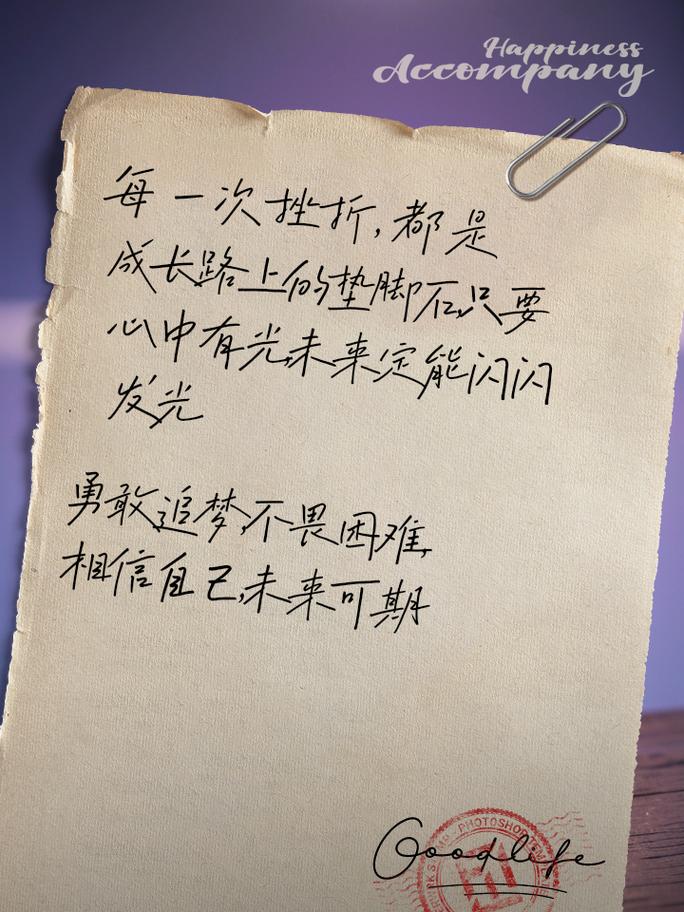 Happiness
Accompany
每一次挫折,都是
成长路上的垫脚石,只要
心中有光,未来定能闪闪
发光
勇敢追梦,不畏困难,
相信自己,未来可期
Goodlife
PHOTOSHOP